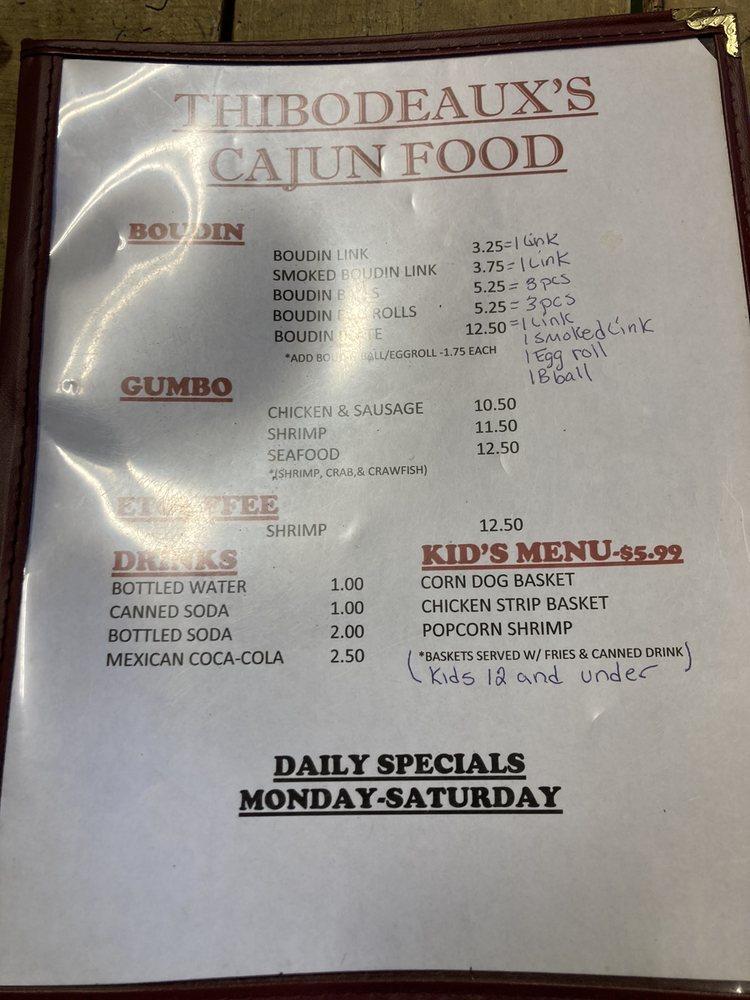 THIBODEAUX'S
CAJUN FOOD
BOUDIN
BOUDIN LINK 3.25 = 1 Link
SMOKED BOUDIN LINK 3.75 = 1 Link
BOUDIN BALLS 5.25 = 3 pcs
BOUDIN EGG ROLLS 5.25 = 3 pcs
BOUDIN PLATE 12.50 = 1 Link
1 smoked Link
*ADD BOUDIN BALL/EGGROLL -1.75 EACH 1 Egg roll
1 B ball
GUMBO
CHICKEN & SAUSAGE 10.50
SHRIMP 11.50
SEAFOOD 12.50
*(SHRIMP, CRAB,& CRAWFISH)
ETOUFFEE
SHRIMP 12.50
DRINKS
BOTTLED WATER 1.00
CANNED SODA 1.00
BOTTLED SODA 2.00
MEXICAN COCA-COLA 2.50
KID'S MENU-$5.99
CORN DOG BASKET
CHICKEN STRIP BASKET
POPCORN SHRIMP
(*BASKETS SERVED W/ FRIES & CANNED DRINK)
Kids 12 and under
DAILY SPECIALS
MONDAY-SATURDAY